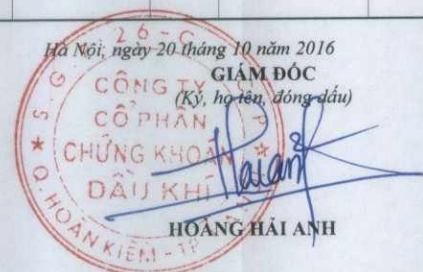 Hà Nội, ngày 20 tháng 10 năm 2016
GIÁM ĐỐC
(Ký, họ tên, đóng dấu)
CÔNG TY
CỔ PHẦN
CHỨNG KHOÁN
DẦU KHÍ
Q. HOÀN KIẾM - TP
HOÀNG HẢI ANH